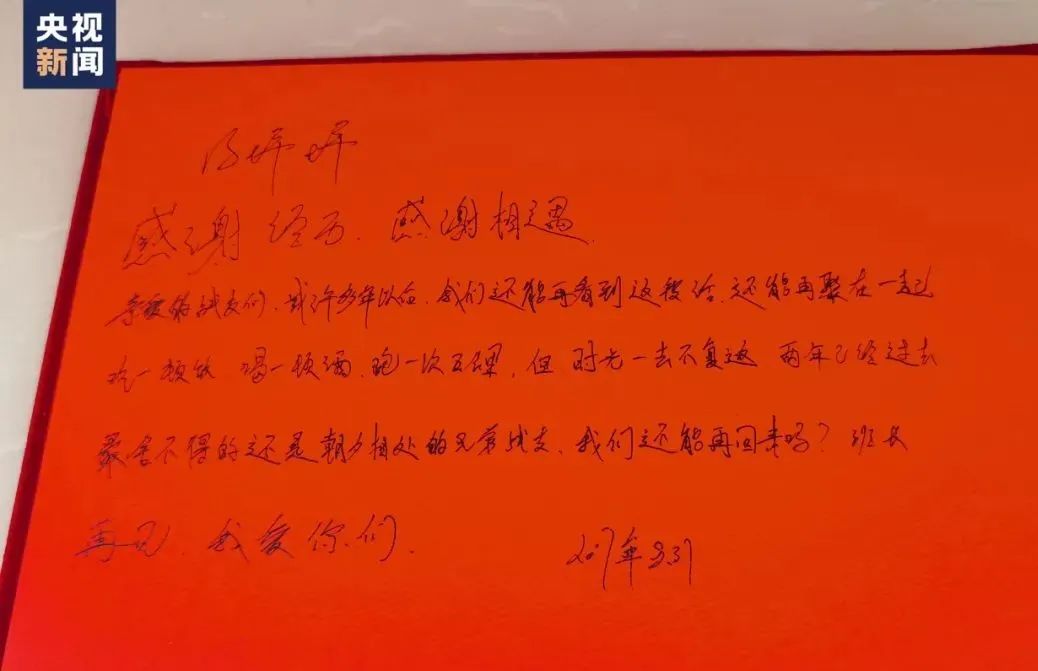 央视
新闻
冯坪坪
感谢经历、感谢相遇
亲爱的战友们、或许多年以后、我们还能再看到这段话、还能再聚在一起
吃一顿饭 喝一顿酒、跑一次五公里、但时光一去不复返 两年已经过去
最舍不得的还是朝夕相处的兄弟战友、我们还能再回来吗？班长
再见、我爱你们、
年8.31